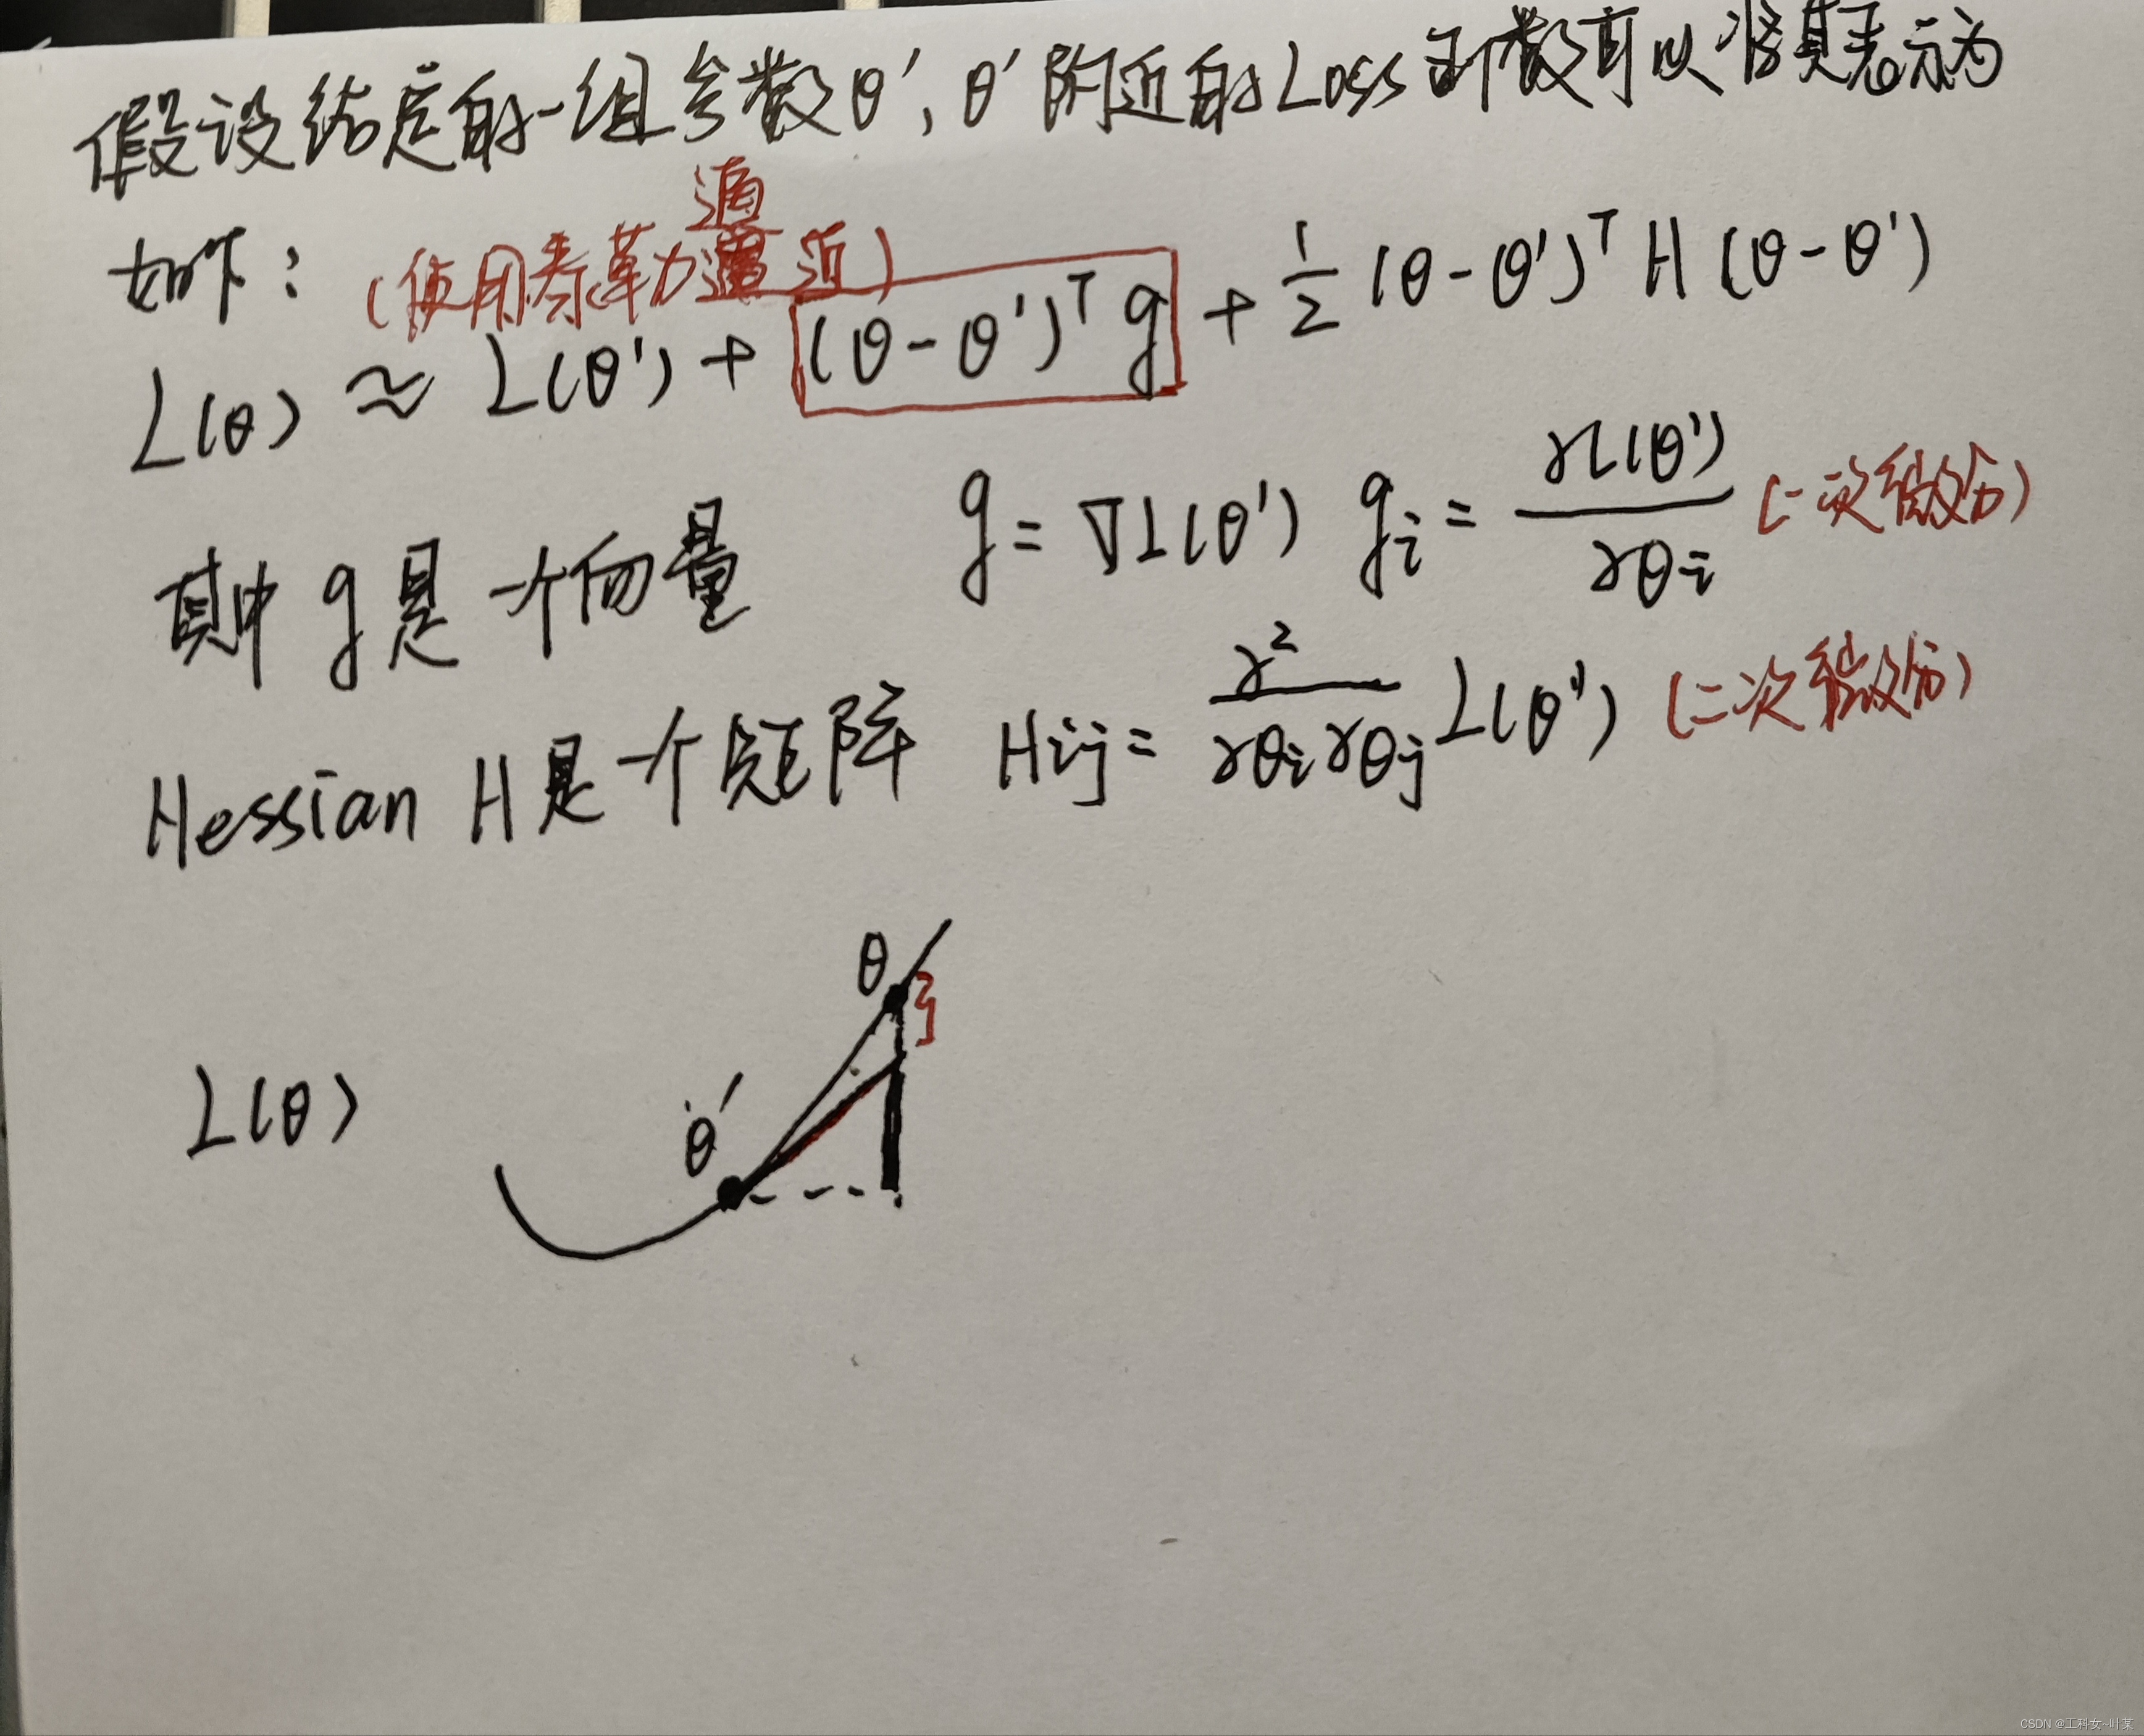 假设给定的一组参数θ′, θ′附近的Loss函数可以将其表示为
如下: (使用泰革力逼近)
L(θ) ≈ L(θ′) + (θ-θ′)ᵀ g + 1/2 (θ-θ′)ᵀ H (θ-θ′)
其中 g是一个向量 g = ∇L(θ′) gᵢ = ∂L(θ′)/∂θᵢ (一次微分)
Hessian H是一个矩阵 Hij = ∂²/∂θᵢ∂θⱼ L(θ′) (二次微分)
θ
L(θ)
θ′
CSDN @工科女~叶某